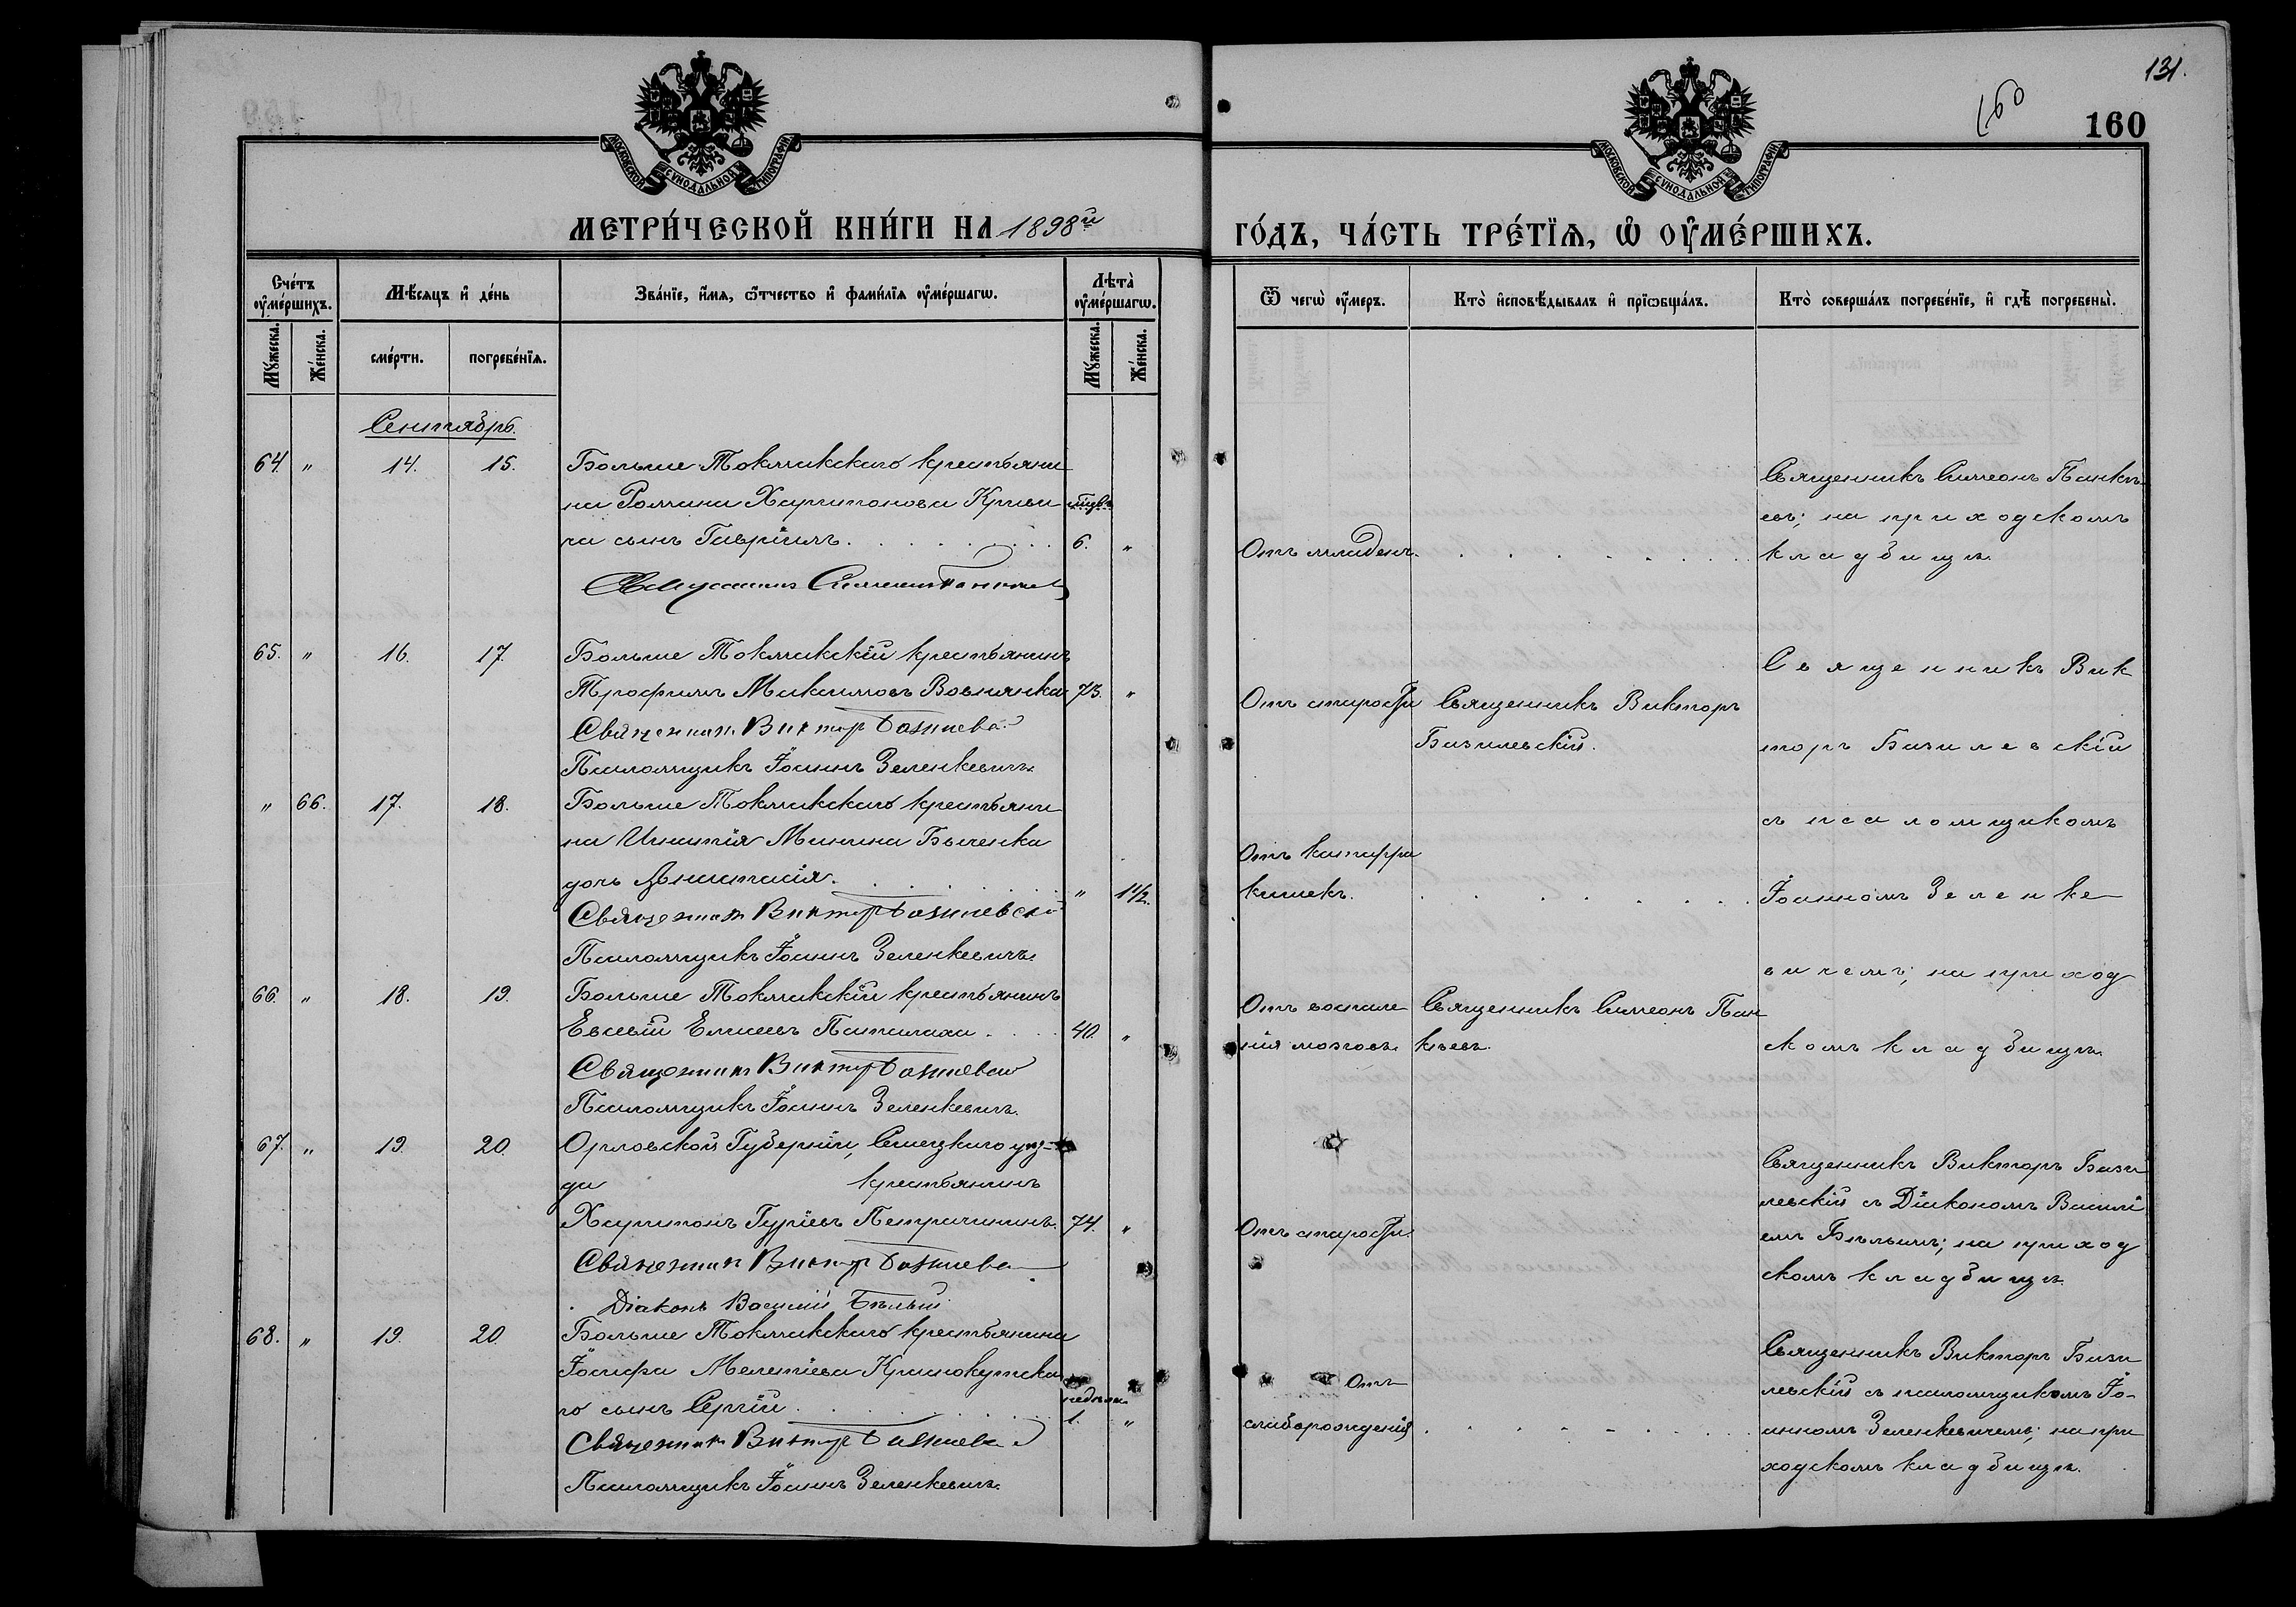 131.
160
160
МОСКОВСКОЙ СѴНОДАЛЬНОЙ ТИПОГРАФІИ
МОСКОВСКОЙ СѴНОДАЛЬНОЙ ТИПОГРАФІИ
МЕТРИ́ЧЕСКОЙ КНИ́ГИ НА 1898й
ГО́ДЪ, ЧА́СТЬ ТРЕ́ТІѦ, Ѡ҆ ОУ҆МЕ́РШИХЪ.
Сче́тъ оу҆ме́ршихъ.
Мꙋ́жеска.
Же́нска.
Мѣ́сяцъ и҆ де́нь
сме́рти.
погребе́нїѧ.
Зва́нїе, и҆́мѧ, ѻ҆́тчество и҆ фами́лїѧ оу҆ме́ршагѡ.
Лѣта̀ оу҆ме́ршагѡ.
Мꙋ́жеска.
Же́нска.
Ѿ чегѡ̀ оу҆́меръ.
Кто̀ и҆сповѣ́дывалъ и҆ прїѡбща́лъ.
Кто̀ соверша́лъ погребе́нїе, и҆ гдѣ̀ погребены̀.
Сентябрь.
64. " 14. 15. Больше Токмакскаго крестьяни
на Романа Харитонова Крива
ча сынъ Гавріилъ. 6. "
Отъ младенч.
Священникъ Симеонъ Панкѣ
евъ; на приходскомъ
кладбищѣ.
65. " 16. 17. Больше Токмакскій крестьянинъ
Трофимъ Максимовъ Вовнянка 73. "
Священник Виктор Базилевс
Псаломщикъ Іоаннъ Зеленкевичъ.
Отъ старости
Священникъ Викторъ
Базилевскій.
Священникъ Вик
торъ Базилевскій
съ псаломщикомъ
Іоанномъ Зеленке
вичемъ; на приход
скомъ кладбищѣ.
" 66. 17. 18. Больше Токмакскаго крестьяни
на Игнатія Минина Быченка
дочь Анастасія. " 1 1/2.
Священник Виктор Базилевскі
Псаломщикъ Іоаннъ Зеленкевичъ.
Отъ катарра
кишекъ.
66. " 18. 19. Больше Токмакскій крестьянинъ
Евсевій Елисеевъ Паталаха 40. "
Священник Виктор Базилевск
Псаломщикъ Іоаннъ Зеленкевичъ.
Отъ воспале
нія мозговъ.
Священникъ Симеонъ Пан
кѣевъ.
67. " 19. 20. Орловской Губерніи, уѣз-
да крестьянинъ
Харитонъ Гуріевъ 74. "
Священник Виктор Базилевс
Діаконъ Василій Бѣлый
Отъ старости
Священникъ Викторъ Бази
левскій съ Діакономъ Василі
емъ Бѣлымъ; на приход
скомъ кладбищѣ.
68. " 19. 20. Больше Токмакскаго крестьянина
Іосифа Мелетіева Краснокутска
го сынъ Сергій недѣл. 1. "
Священник Виктор Базилевс
Псаломщикъ Іоаннъ Зеленкевичъ.
Отъ
слаборожденія
Священникъ Викторъ Бази
левскій съ псаломщикомъ Іо-
анномъ Зеленкевичемъ; на при
ходскомъ кладбищѣ.